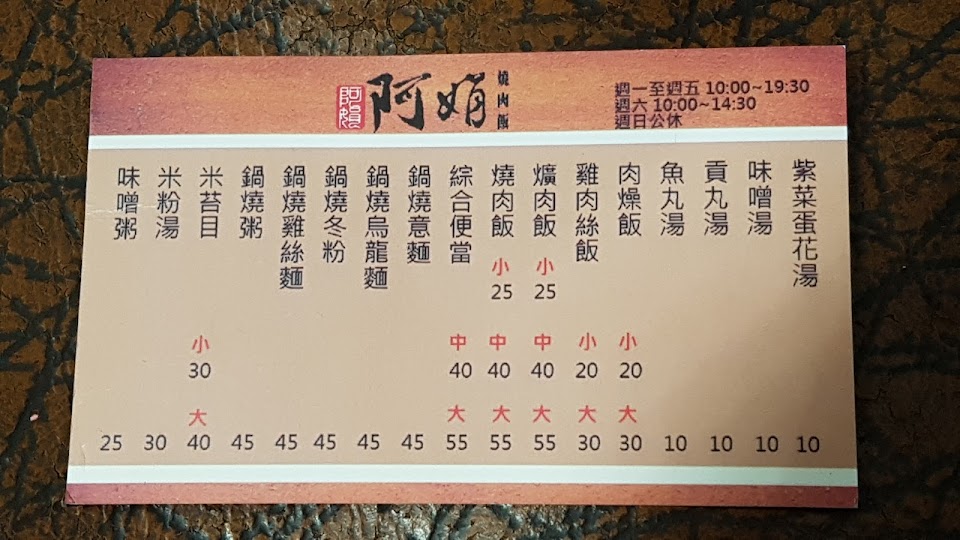 阿娟
燒肉飯
週一至週五 10:00~19:30
週六 10:00~14:30
週日公休
紫菜蛋花湯 10
味噌湯 10
貢丸湯 10
魚丸湯 10
肉燥飯 小 20 大 30
雞肉絲飯 小 20 大 30
爌肉飯 小 25 中 40 大 55
燒肉飯 小 25 中 40 大 55
綜合便當 中 40 大 55
鍋燒意麵 45
鍋燒烏龍麵 45
鍋燒冬粉 45
鍋燒雞絲麵 45
鍋燒粥 45
米苔目 小 30 大 40
米粉湯 30
味噌粥 25